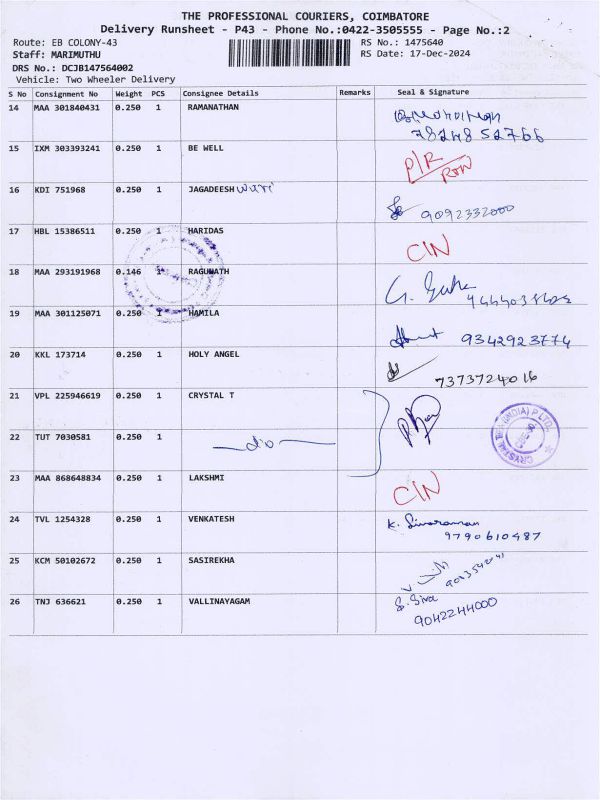 THE PROFESSIONAL COURIERS, COIMBATORE
Delivery Runsheet - P43 - Phone No.:0422-3505555 - Page No.:2
Route: EB COLONY-43 RS No.: 1475640
Staff: MARIMUTHU RS Date: 17-Dec-2024
DRS No.: DCJB147564002
Vehicle: Two Wheeler Delivery
S No Consignment No Weight PCS Consignee Details Remarks Seal & Signature
14 MAA 301840431 0.250 1 RAMANATHAN
7824852766
15 IXM 303393241 0.250 1 BE WELL P/R
16 KDI 751968 0.250 1 JAGADEESHwari 9092332000
17 HBL 15386511 0.250 1 HARIDAS CIN
18 MAA 293191968 0.146 1 RAGUNATH
19 MAA 301125071 0.250 1 HAMILA 9342923774
20 KKL 173714 0.250 1 HOLY ANGEL 7373724016
21 VPL 225946619 0.250 1 CRYSTAL T
22 TUT 7030581 0.250 1 do
23 MAA 868648834 0.250 1 LAKSHMI CIN
24 TVL 1254328 0.250 1 VENKATESH K. Sivaraman
9790610487
25 KCM 50102672 0.250 1 SASIREKHA
26 TNJ 636621 0.250 1 VALLINAYAGAM S. Siva
9042244000